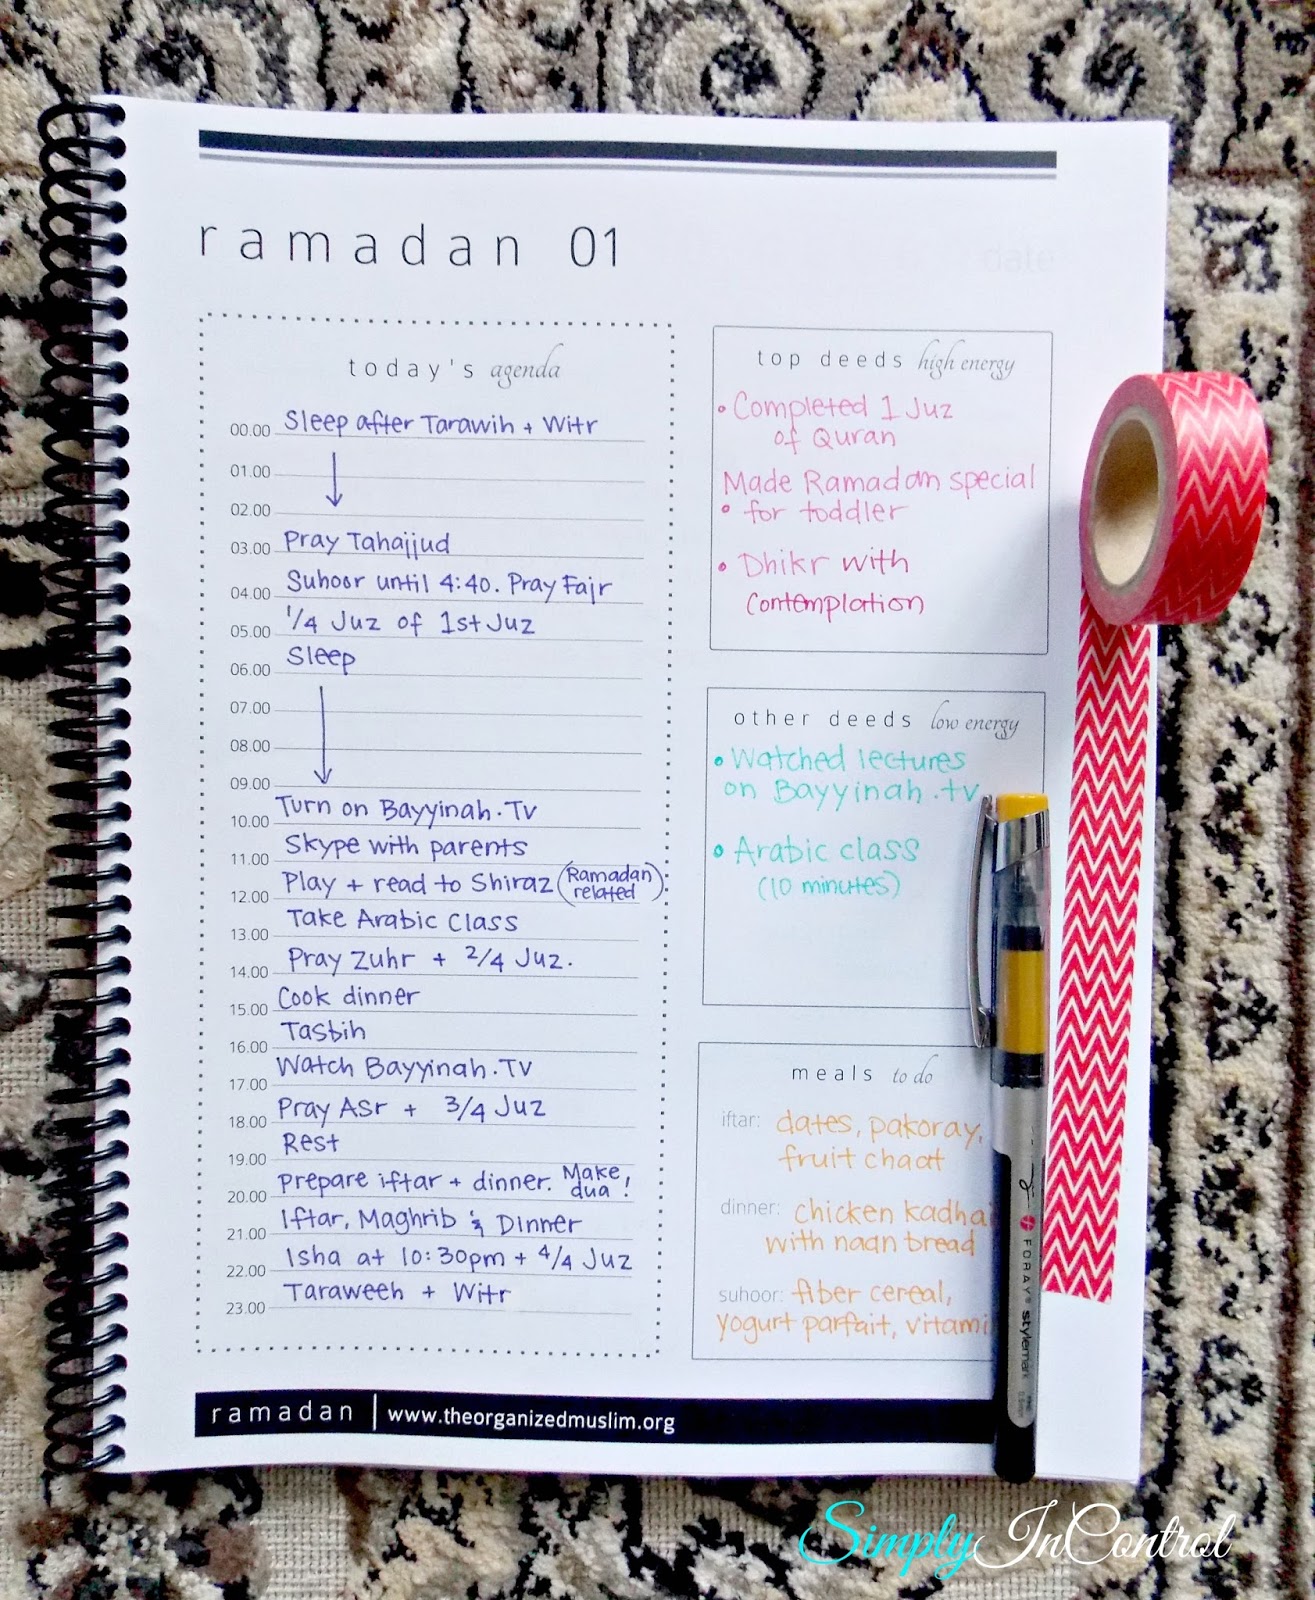 ramadan 01
date
today's agenda
00.00 Sleep after Tarawih + Witr
01.00
02.00
03.00 Pray Tahajjud
04.00 Suhoor until 4:40. Pray Fajr
05.00 1/4 Juz of 1st Juz
06.00 Sleep
07.00
08.00
09.00
10.00 Turn on Bayyinah.Tv
11.00 Skype with parents
12.00 Play + read to Shiraz (Ramadan related)
13.00 Take Arabic Class
14.00 Pray Zuhr + 2/4 Juz.
15.00 Cook dinner
16.00 Tasbih
17.00 Watch Bayyinah.Tv
18.00 Pray Asr + 3/4 Juz
19.00 Rest
20.00 prepare iftar + dinner. Make dua!
21.00 Iftar, Maghrib & Dinner
22.00 Isha at 10:30pm + 4/4 Juz
23.00 Taraweeh + Witr
top deeds high energy
• Completed 1 Juz
of Quran
Made Ramadan special
• for toddler
• Dhikr with
contemplation
other deeds low energy
• Watched lectures
on Bayyinah.tv
• Arabic class
(10 minutes)
meals to do
iftar: dates, pakoray,
fruit chaat
dinner: chicken kadha
with naan bread
suhoor: fiber cereal,
yogurt parfait, vitami
ramadan | www.theorganizedmuslim.org
FORAY stylemark
SimplyInControl